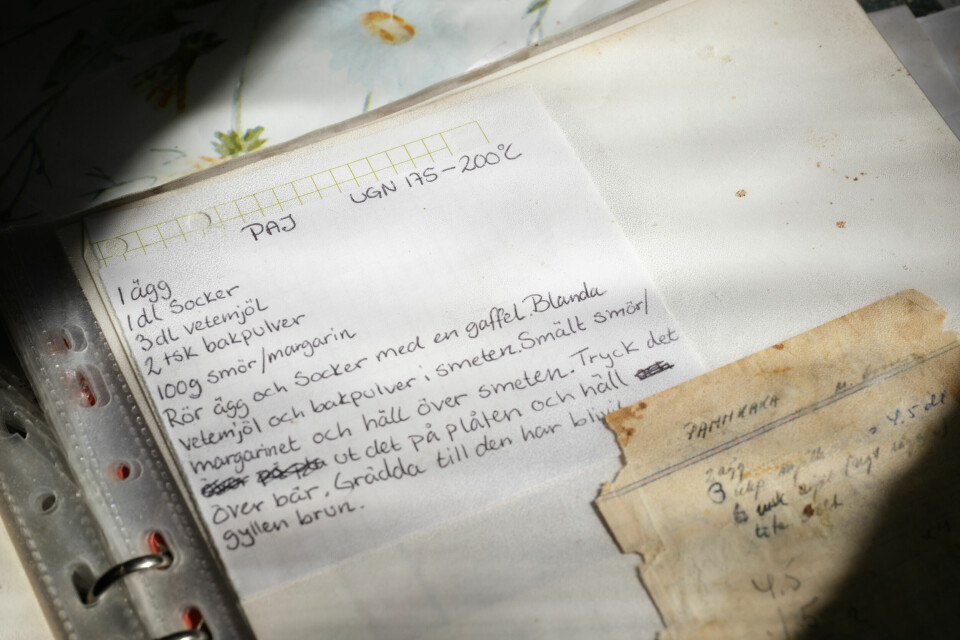 PAJ UGN 175-200°C
1 ägg
1 dl Socker
3 dl vetemjöl
2 tsk bakpulver
100g smör/margarin
Rör ägg och Socker med en gaffel. Blanda
vetemjöl och bakpulver i smeten. Smält smör/
margarinet och häll över smeten. Tryck det
ut det på plåten och häll
över bär. Grädda till den har blivit
gyllen brun.
PANNKAKA
3
4.5 dl
4.5